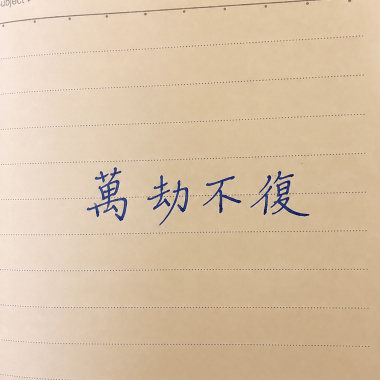 Subject
萬劫不復